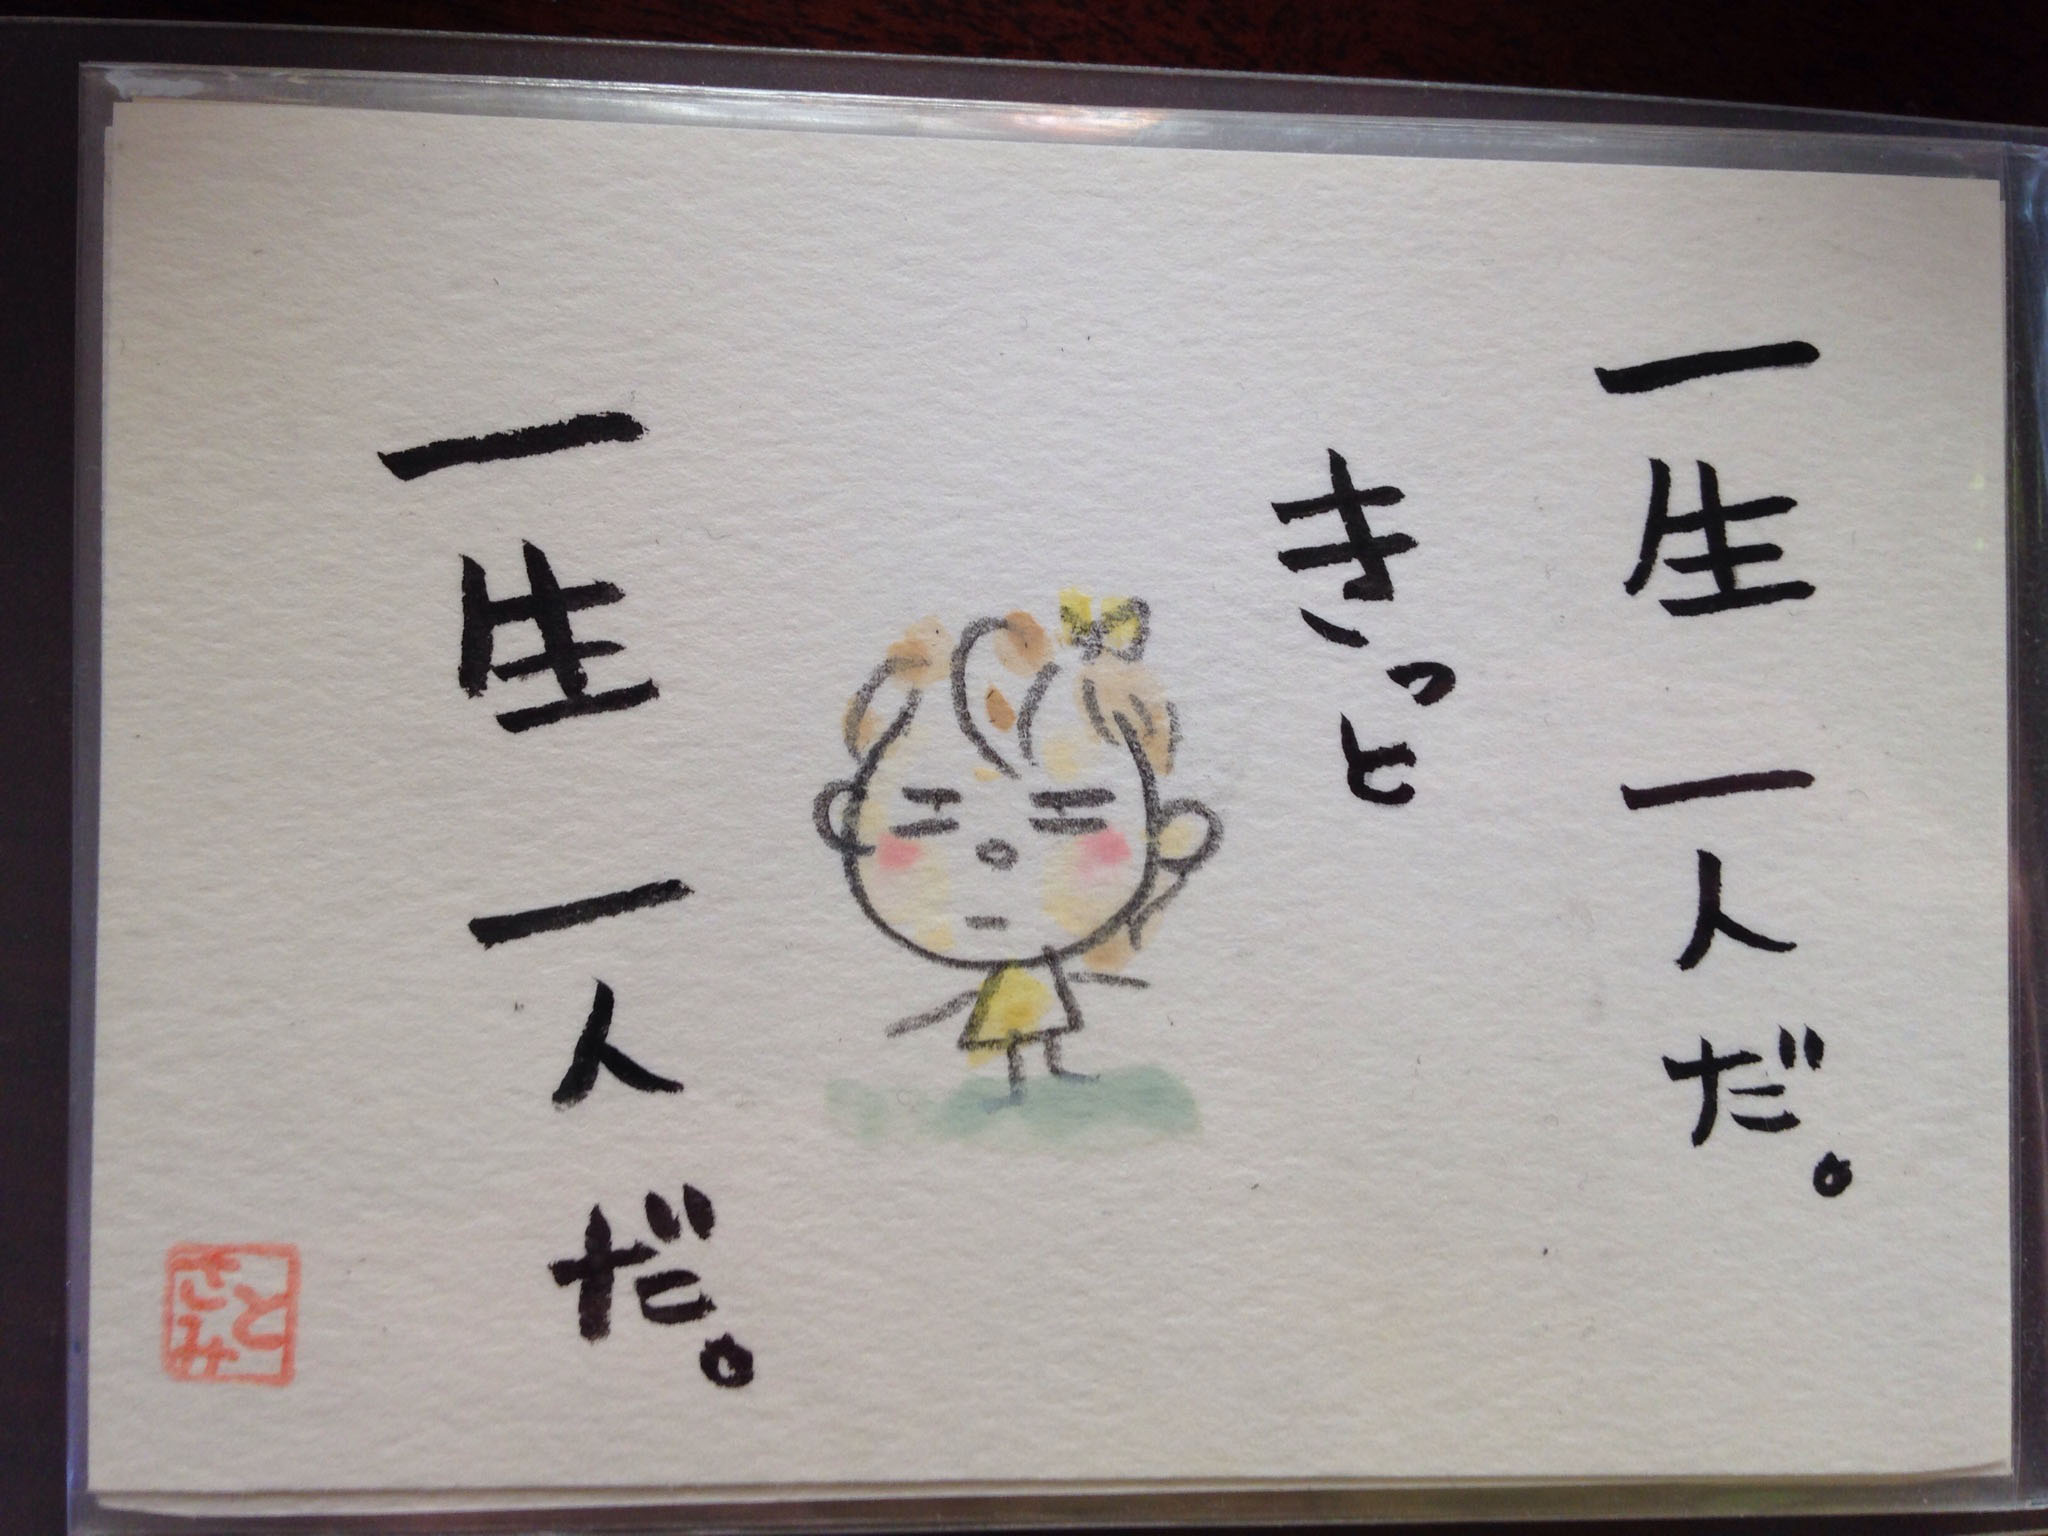 一生一人だ。
きっと
一生一人だ。
とみ